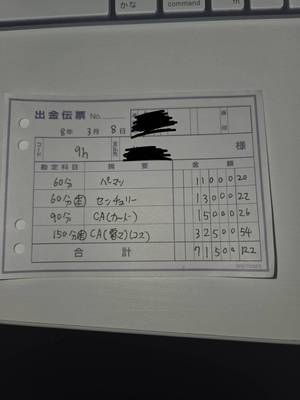 かな
command
出金伝票 No.
8年 3月 8日
コード 9h 支払先 様
勘定科目 摘要 金額
60分 パーマン 11000 20
60分 センチュリー 13000 22
90分 CA(カード) 15000 26
150分 CA(電マ)(コス) 32500 54
合計 71500 122